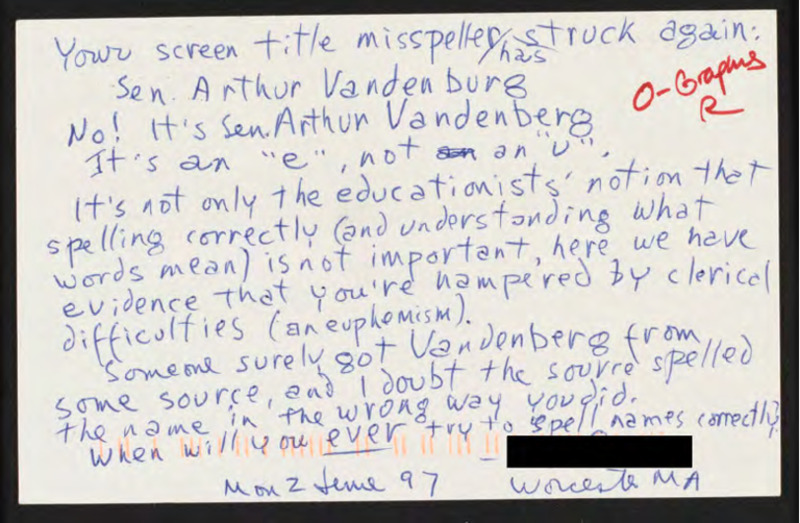 Your screen title misspeller/has struck again:
Sen. Arthur Vandenburg
O-Graphus
R
No! It's Sen. Arthur Vandenberg
It's an "e", not an "u".
It's not only the educationists' notion that
spelling correctly (and understanding what
words mean) is not important, here we have
evidence that you're hampered by clerical
difficulties (an euphemism).
Someone surely got Vandenberg from
some source, and I doubt the source spelled
the name in the wrong way you did.
When will you ever try to spell names correctly?
Mon 2 June 97 Worcester MA